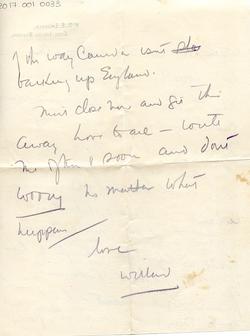 2017.001.0033
the way Canada isnt
backing up England.
Must close now and get this
away love to all – write
me often & soon and don't
worry no matter what
happens
love
Willard